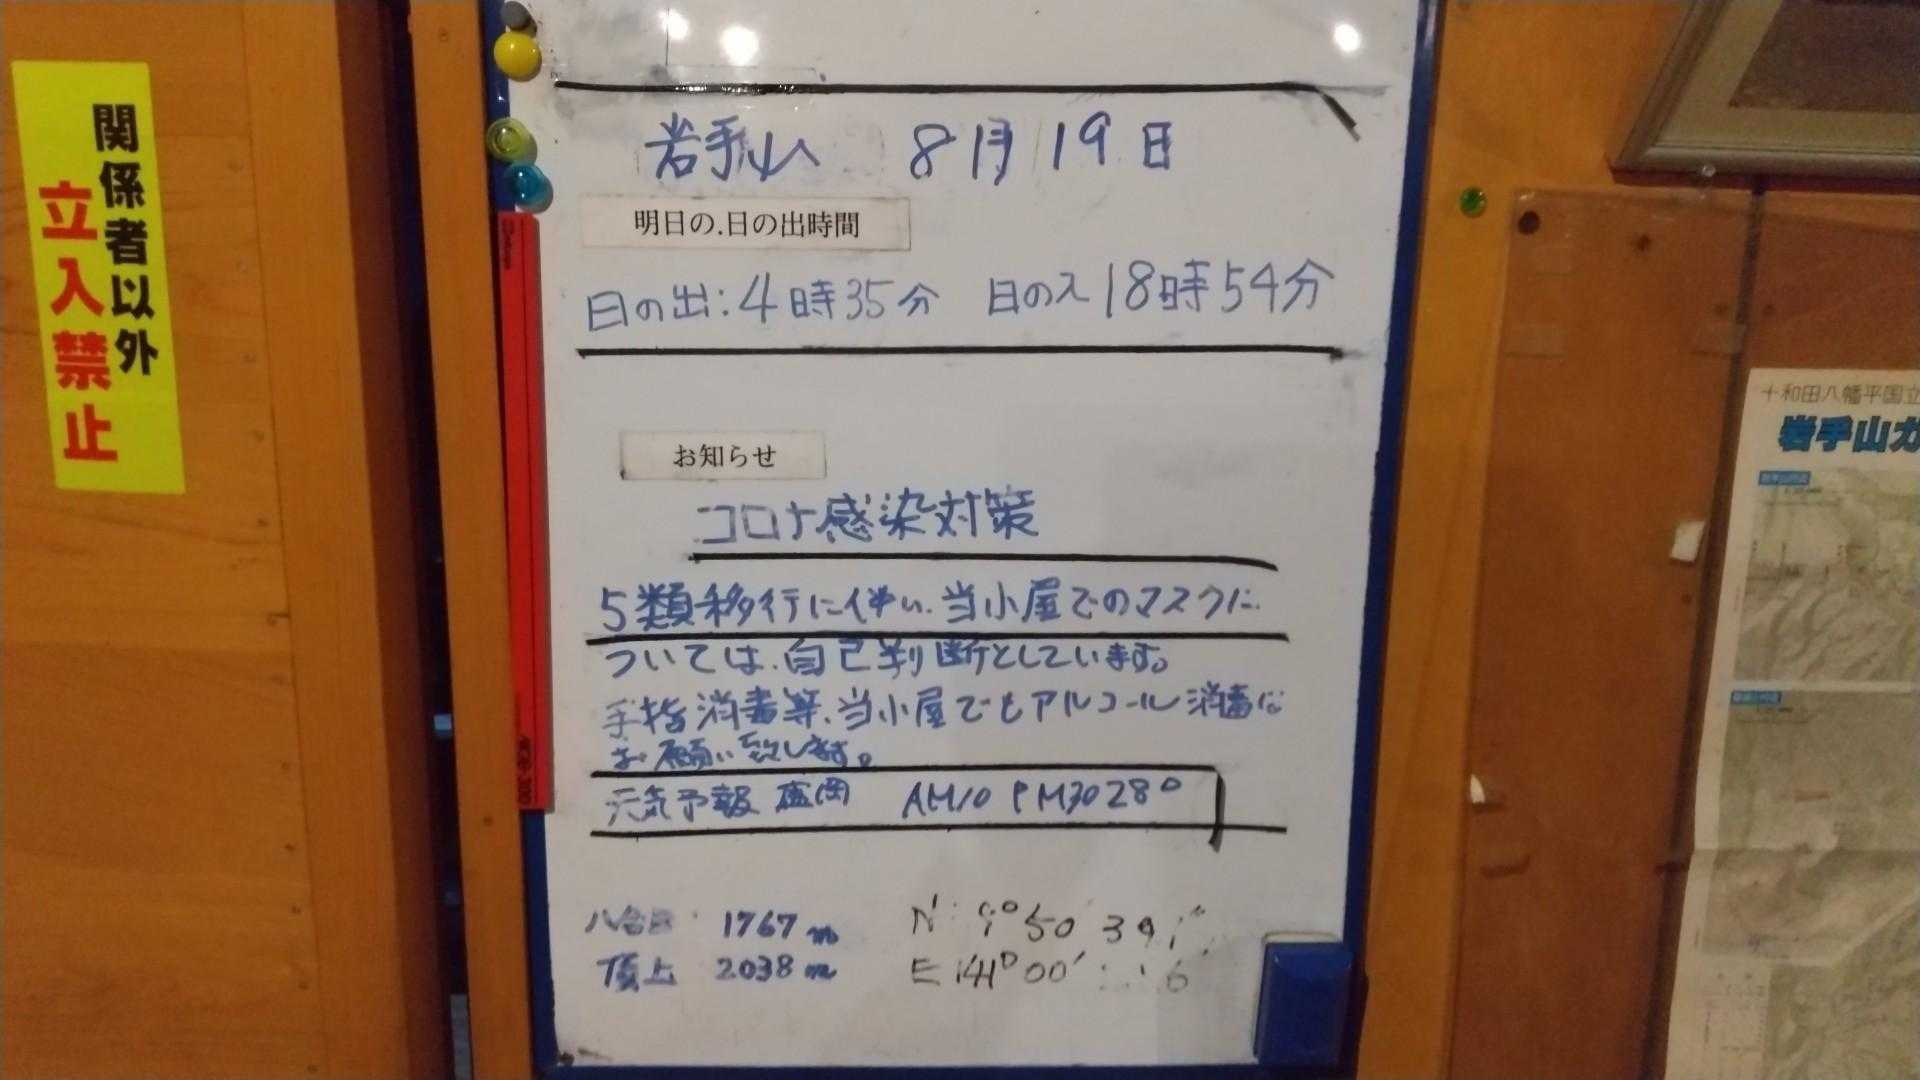 関係者以外
立入禁止
岩手山 8月19日
明日の.日の出時間
日の出:4時35分 日の入18時54分
お知らせ
コロナ感染対策
5類移行に伴い、当小屋でのマスクに
ついては、自己判断としています。
手指消毒等、当小屋でもアルコール消毒を
お願い致します。
天気予報 盛岡 AM10 PM30 28°
八合目 1767m
頂上 2038m
E 141° 00′
十和田八幡平国立
岩手山ガ